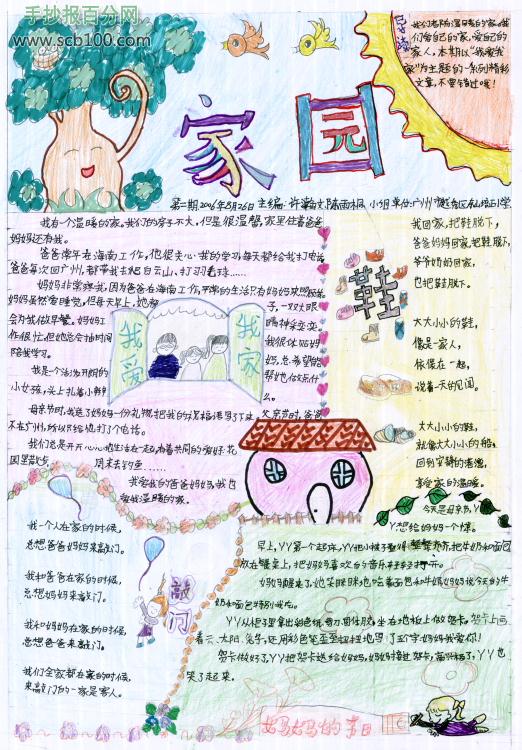 手抄报百分网
www.scb100.com
家园
我们都有温暖的家。我
们爱自己的家，爱自己的
家人。本期以“我爱我
家”为主题的一系列精彩
文章，不要错过哦！
第二期 2006年5月26日 主编：许
小组 单位：广州
我有个温暖的家。我们的房子不大，但是很温馨，家里住着爸爸
妈妈还有我。
爸爸常年在海南工作，他很关心我的学习每天都给我打电话
爸爸每次回广州，都带我去爬白云山、打羽毛球……
妈妈非常疼我，因为爸爸在海南工作，平常的生活只有妈妈来照顾我
妈妈虽然爱睡觉，但每天早上，她都
会为我做早餐。妈妈工
作很忙，但她总会抽时间
陪我学习。
我是个活泼开朗的
小女孩，头上扎着小辫
子，一双大眼
睛神采奕奕。
我很体贴妈
妈，总希望能
帮她做点什
么。
我爱
我家
母亲节时，我送了妈妈一份礼物，把我的祝福德写了下来。父亲节时，爸爸
不在广州，所以只给他打了个电话。
我们总是开开心心地生活在一起，有着共同的爱好：花
园里散步，周末去钓鱼……
我爱我的爸爸妈妈，我也
爱我温暖的家。
鞋
我回家，把鞋脱下，
爸爸妈妈回家，把鞋脱下，
爷爷奶奶回家，
也把鞋脱下。
大大小小的鞋，
像是一家人，
依偎在一起，
说着一天的见闻。
大大小小的鞋，
就像大大小小的船，
回到安静的港湾，
享受家的温暖。
敲门
我一个人在家的时候，
总想爸爸妈妈来敲门。
我和爸爸在家的时候，
总想妈妈来敲门。
我和妈妈在家的时候，
总想爸爸来敲门。
我们全家都在家的时候，
来敲门的一定是客人。
今天是母亲节，YY
想给妈妈一个惊。
早上，YY第一个起床，YY把小被子整理整齐齐，把牛奶和面包
放在餐桌上，把妈妈喜欢的音乐
妈妈醒来了，她笑眯眯地吃着面包和牛奶，妈妈说今天的牛
奶和面包特别好吃。
YY从柜子里拿出彩色纸、剪刀、固体胶，坐在地板上做贺卡。贺卡上画
着云、太阳、兔子，还用彩色笔歪歪扭扭地写了五个字：妈妈我爱你！
贺卡做好了，YY把贺卡送给妈妈，妈妈接过贺卡，
YY也
笑了起来。
妈妈的节日